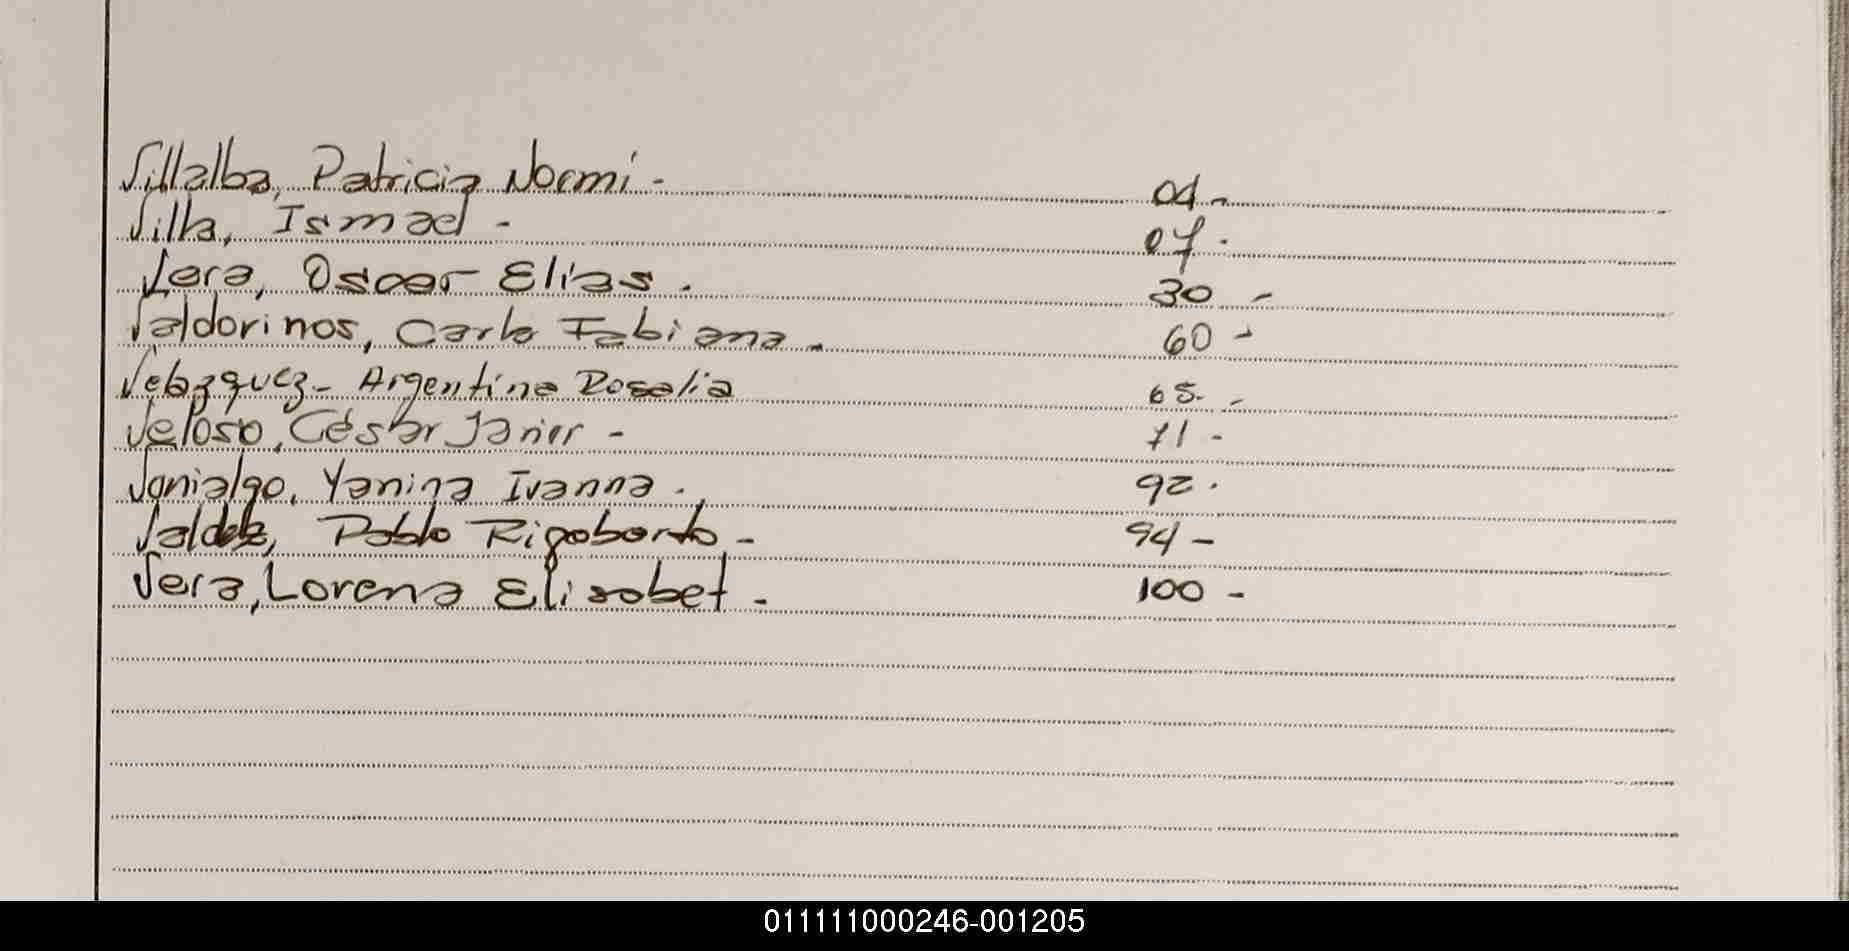 Villalba, Patricia Noemi - 04 -
Villa, Ismael - 07 -
Vera, Oscar Elias . 30 -
Valdorinos, Carla Fabiana - 60 -
Velazquez - Argentina Rosalia 65 - -
Veloso, César Javier - 71 -
Vanialgo, Yanina Ivanna . 92 .
Valdez, Pablo Rigoberto - 94 -
Vera, Lorena Elisabet - 100 -
011111000246-001205